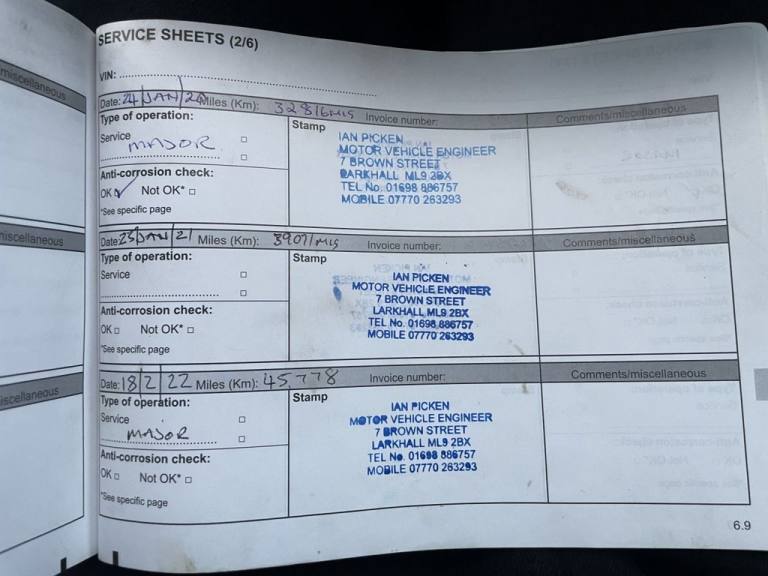 SERVICE SHEETS (2/6)
VIN:
miscellaneous
Date: 24/JAN/20 Miles (Km): 32816MIS Invoice number: Comments/miscellaneous
Type of operation:
Stamp
Service
MAJOR
Anti-corrosion check:
OK ✓ Not OK*
*See specific page
IAN PICKEN
MOTOR VEHICLE ENGINEER
7 BROWN STREET
LARKHALL ML9 2BX
TEL No. 01698 886757
MOBILE 07770 263293
miscellaneous
Date: 23/JAN/21 Miles (Km): 39071MIS Invoice number: Comments/miscellaneous
Type of operation:
Stamp
Service
Anti-corrosion check:
OK Not OK*
*See specific page
IAN PICKEN
MOTOR VEHICLE ENGINEER
7 BROWN STREET
LARKHALL ML9 2BX
TEL No. 01698 886757
MOBILE 07770 263293
iscellaneous
Date: 18/2/22 Miles (Km): 45,778 Invoice number: Comments/miscellaneous
Type of operation:
Stamp
Service
MAJOR
Anti-corrosion check:
OK Not OK*
*See specific page
IAN PICKEN
MOTOR VEHICLE ENGINEER
7 BROWN STREET
LARKHALL ML9 2BX
TEL No. 01698 886757
MOBILE 07770 263293
6.9